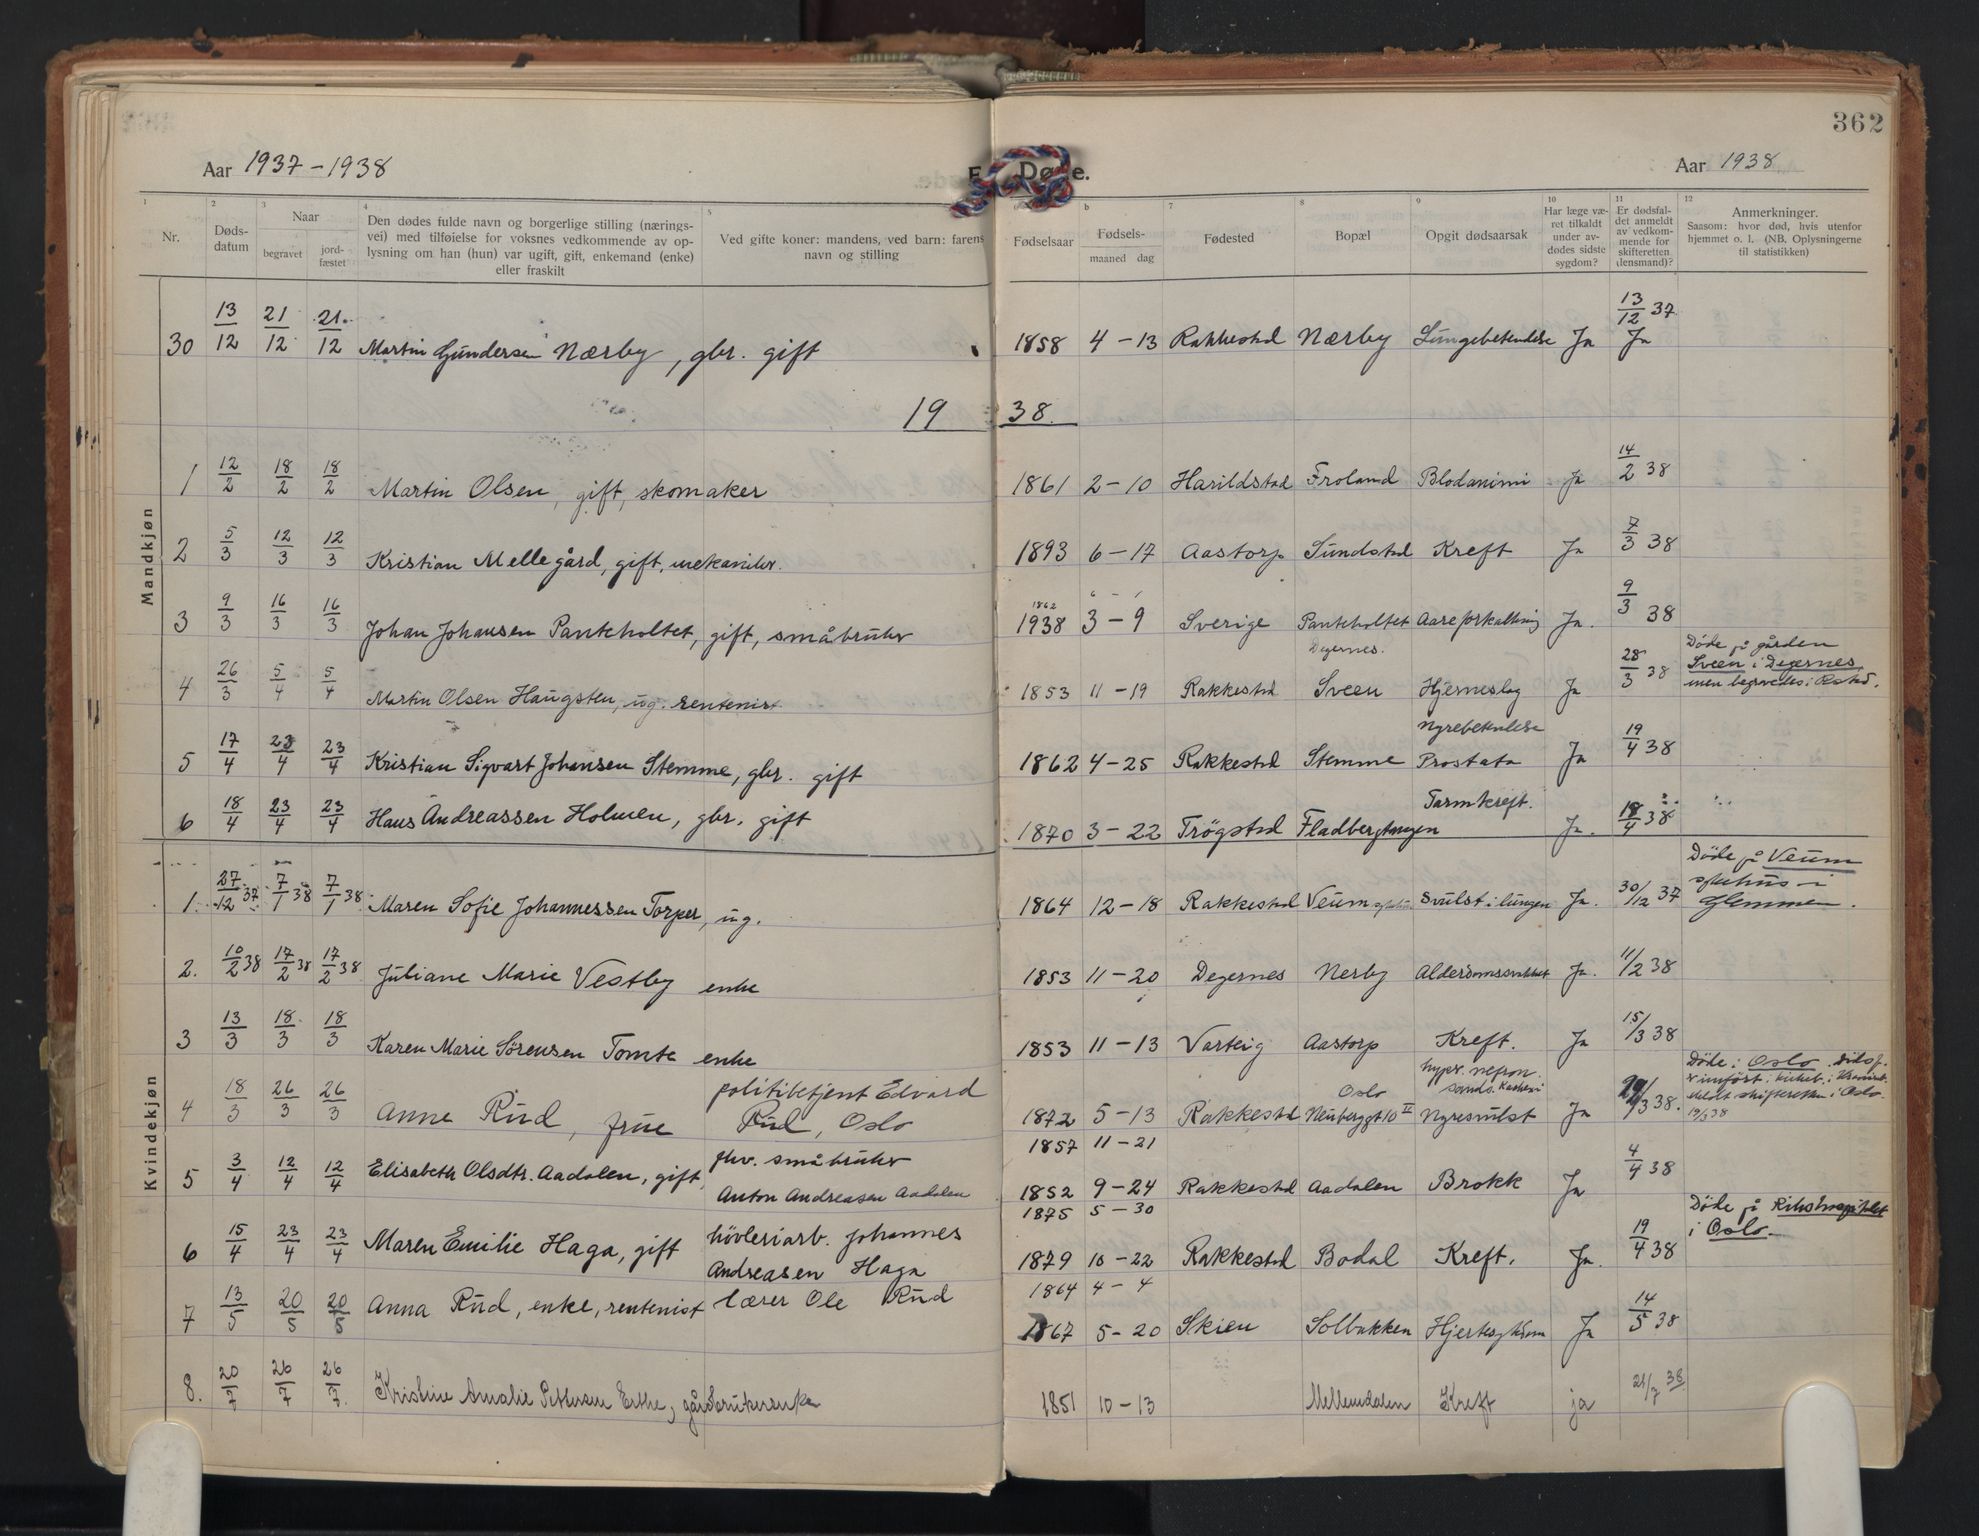 362
Aar 1937-1938
F. Døde.
Aar 1938
1 Nr.
2 Døds-datum
3 Naar begravet jord-fæstet
4 Den dødes fulde navn og borgerlige stilling (nærings-
vei) med tilføielse for voksnes vedkommende av op-
lysning om han (hun) var ugift, gift, enkemand (enke)
eller fraskilt
5 Ved gifte koner: mandens, ved barn: farens
navn og stilling
Fødselsaar
b Fødsels-
maaned dag
7 Fødested
8 Bopæl
9 Opgit dødsaarsak
10 Har læge væ-
ret tilkaldt
under av-
dødes sidste
sygdom?
11 Er dødsfal-
det anmeldt
av vedkom-
mende for
skifteretten
(lensmand)?
12 Anmerkninger.
Saasom: hvor død, hvis utenfor
hjemmet o. l. (NB. Oplysningerne
til statistikken)
Mandkjøn
30 13/12 21/12 21/12 Martin Gundersen Nærby, gbr. gift 1858 4-13 Rakkestad Nærby Lungebetendelse Ja 13/12 37 Ja
1938.
1 12/2 18/2 18/2 Martin Olsen, gift, skomaker 1861 2-10 Harildstad Froland Blodanimi Ja 14/2 38
2 5/3 12/3 12/3 Kristian Mellegård, gift, mekaniker. 1893 6-17 Aastorp Sundstad Kreft Ja 7/3 38
3 9/3 16/3 16/3 Johan Johansen Panteholtet, gift, småbruker 1862 1938 3-9 Sverige Panteholtet Aareforkalkning Ja. 9/3 38
4 26/3 5/4 5/4 Martin Olsen Haugsten, ug. rentenist 1853 11-19 Rakkestad Degernes. Sveen Hjerneslag Ja 28/3 38 Døde på gården
Sveen i Degernes,
men begravedes i Rstad.
5 17/4 23/4 23/4 Kristian Sigvart Johansen Stemme, gbr. gift 1862 4-25 Rakkestad Stemme Nyrebetendelse Prostata Ja 19/4 38
6 18/4 23/4 23/4 Hans Andreassen Holmen, gbr. gift 1870 3-22 Trøgstad Fladbergtangen Tarmkreft. Ja. 18/4 38
Kvindekjøn
1. 27/12 37 7/1 38 7/1 38 Maren Sofie Johannessen Torper, ug. 1864 12-18 Rakkestad Veum Svulst i lungen Ja. 30/12 37 Døde på Veum
sykehus i
Glemmen.
2. 10/2 38 17/2 38 17/2 38 Juliane Marie Vestby enke 1853 11-20 Degernes Nerby Ja. 11/2 38
3 13/3 18/3 18/3 Karen Marie Sørensen Tomte enke 1853 11-13 Varteig Aastorp Kreft. Ja 15/3 38
4 18/3 26/3 26/3 Anne Rud, frue politibetjent Edvard
Rud, Oslo 1872 5-13 Rakkestad Oslo Neuberggt 10 II hypr. nefron. Nyresvulst Ja 3 38. Døde i Oslo.
skifteretten i Oslo.
19/3 38
5 3/4 12/4 12/4 Elisabeth Olsdtr. Aadalen, gift, fhv. småbruker
Anton Andreasen Aadalen 1857 11-21
1852 9-24 Rakkestad Aadalen Brokk Ja 4/4 38
6 15/4 23/4 23/4 Maren Emilie Haga, gift høvleriarb. Johannes
Andreasen Haga 1875 5-30
1879 10-22 Rakkestad Bodal Kreft. Ja. 19/4 38 Døde på Rikshospitalet
i Oslo.
7 13/5 20/5 20/5 Anna Rud, enke, rentenist lærer Ole Rud 1864 4-4
1867 5-20 Skien Solbakken Hjertesykdom Ja 14/5 38
8. 20/7 26/7 26/7 Kristine Amalie Pettersen Erthe, gårdbrukerenke 1851 10-13 Mellemdalen Kreft ja 21/7 38